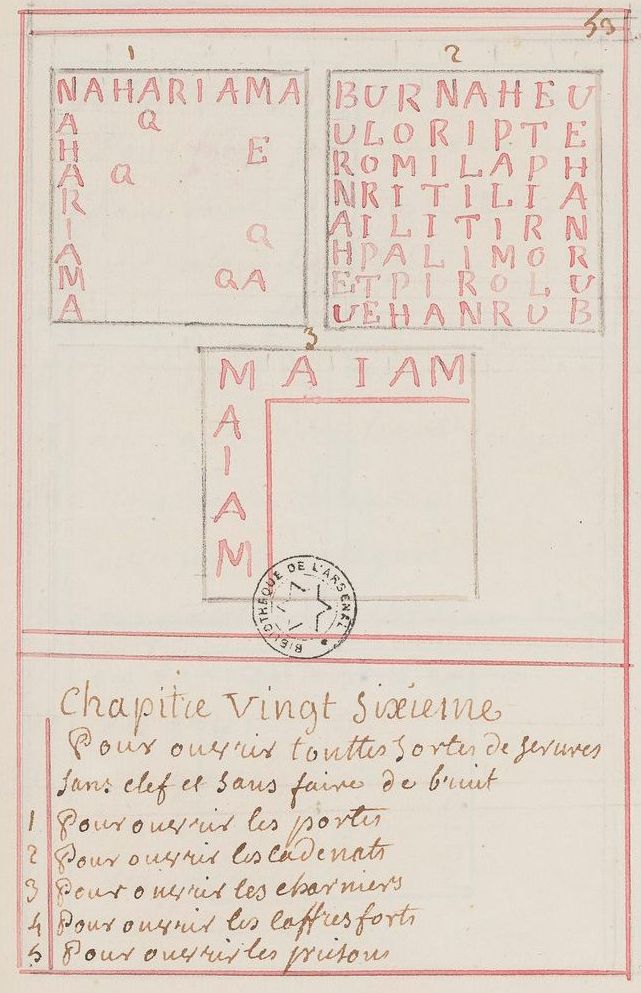 53
1
NAHARIAMA
A Q
H E
A Q
R
I Q
A
M QA
A
2
BURNAHEU
ULORIPTE
ROMILAPH
NRITILIA
AILITIRN
HPALIMOR
ETPIROLU
UEHANRUB
3
MAIAM
A
I
A
M
BIBLIOTHEQUE DE L'ARSENAL
Chapitre Vingt Sixieme
Pour ouurir touttes Sortes de Serures
Sans clef et Sans faire de bruit
1 Pour ouurir les portes
2 Pour ouurir les cadenats
3 Pour ouurir les charniers
4 Pour ouurir les Caffres forts
5 Pour ouurir les prisons